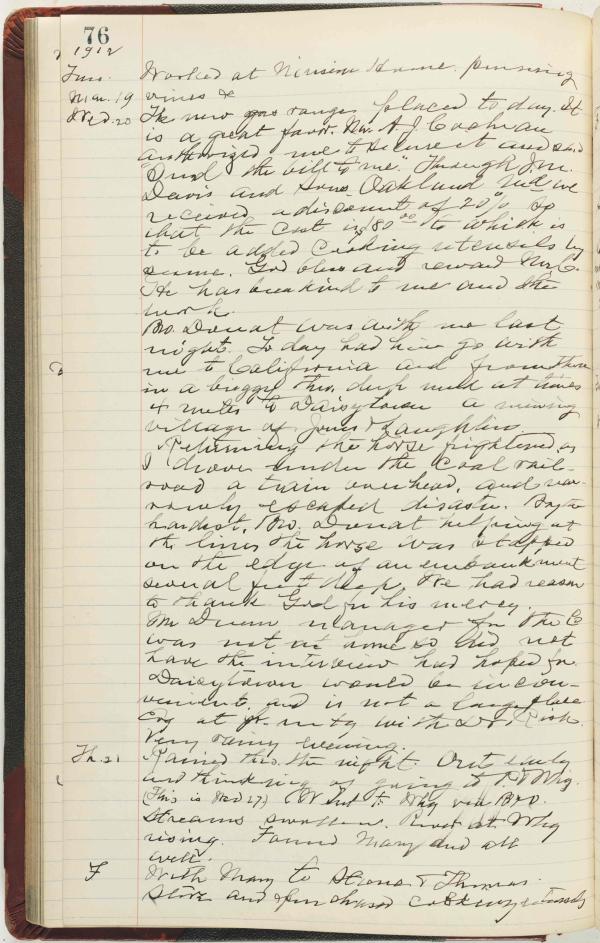 76
1912
Tues. Worked at Home pruning
Mar. 19 vines &
Wed. 20 The new range placed to day. It
is a great favor. Mr. A. J. Cochran
authorized me to secure it and said
"Send the bill to me." Through J. M.
Davis and Sons Oakland Ind we
received a discount of 20% so
that the cost is $80.00 to which is
to be added cooking utensils by
same. God bless and reward Mr. C.
He has been kind to me and the
work.
Bro. Donat was with me last
night. To day had him go with
me to California and from there
in a buggy thro. deep mud at times
4 miles to Daisytown a mining
village of Jones & Laughlins.
Returning the horse frightened as
I drove under the coal rail-
road a train overhead, and nar-
rowly escaped disaster. By the
hardest, Bro. Donat helping at
the lines the horse was stopped
on the edge of an embankment
several feet deep. We had reason
to thank God for his mercy.
Mr manager for the C
was not at home so did not
have the interview had hoped for.
Daisytown would be incon-
venient, and is not a large place
Eng at with Dr.
Very rainy evening.
Th. 21 Rained thro. the night. Out early
and thinking of going to
(This is Wed 27) via B&O.
Streams swollen. River at
rising. Found Mary and all
well.
F With Mary to & Thomas
store and purchased cooking utensils